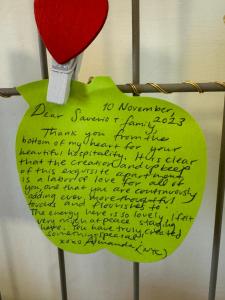 10 November,
Dear Saverio + 2023
family,
Thank you from the
bottom of my heart for your
beautiful hospitality. It is clear
that the creation and upkeep
of this exquisite apartment
is a labor of love for all of
you, and that you are continuously
adding ever more thoughtful
touches and flourishes to it.
The energy here is so lovely, I felt
very much at peace staying
here. You have truly created
something special.
xoxo Amanda (NYC)